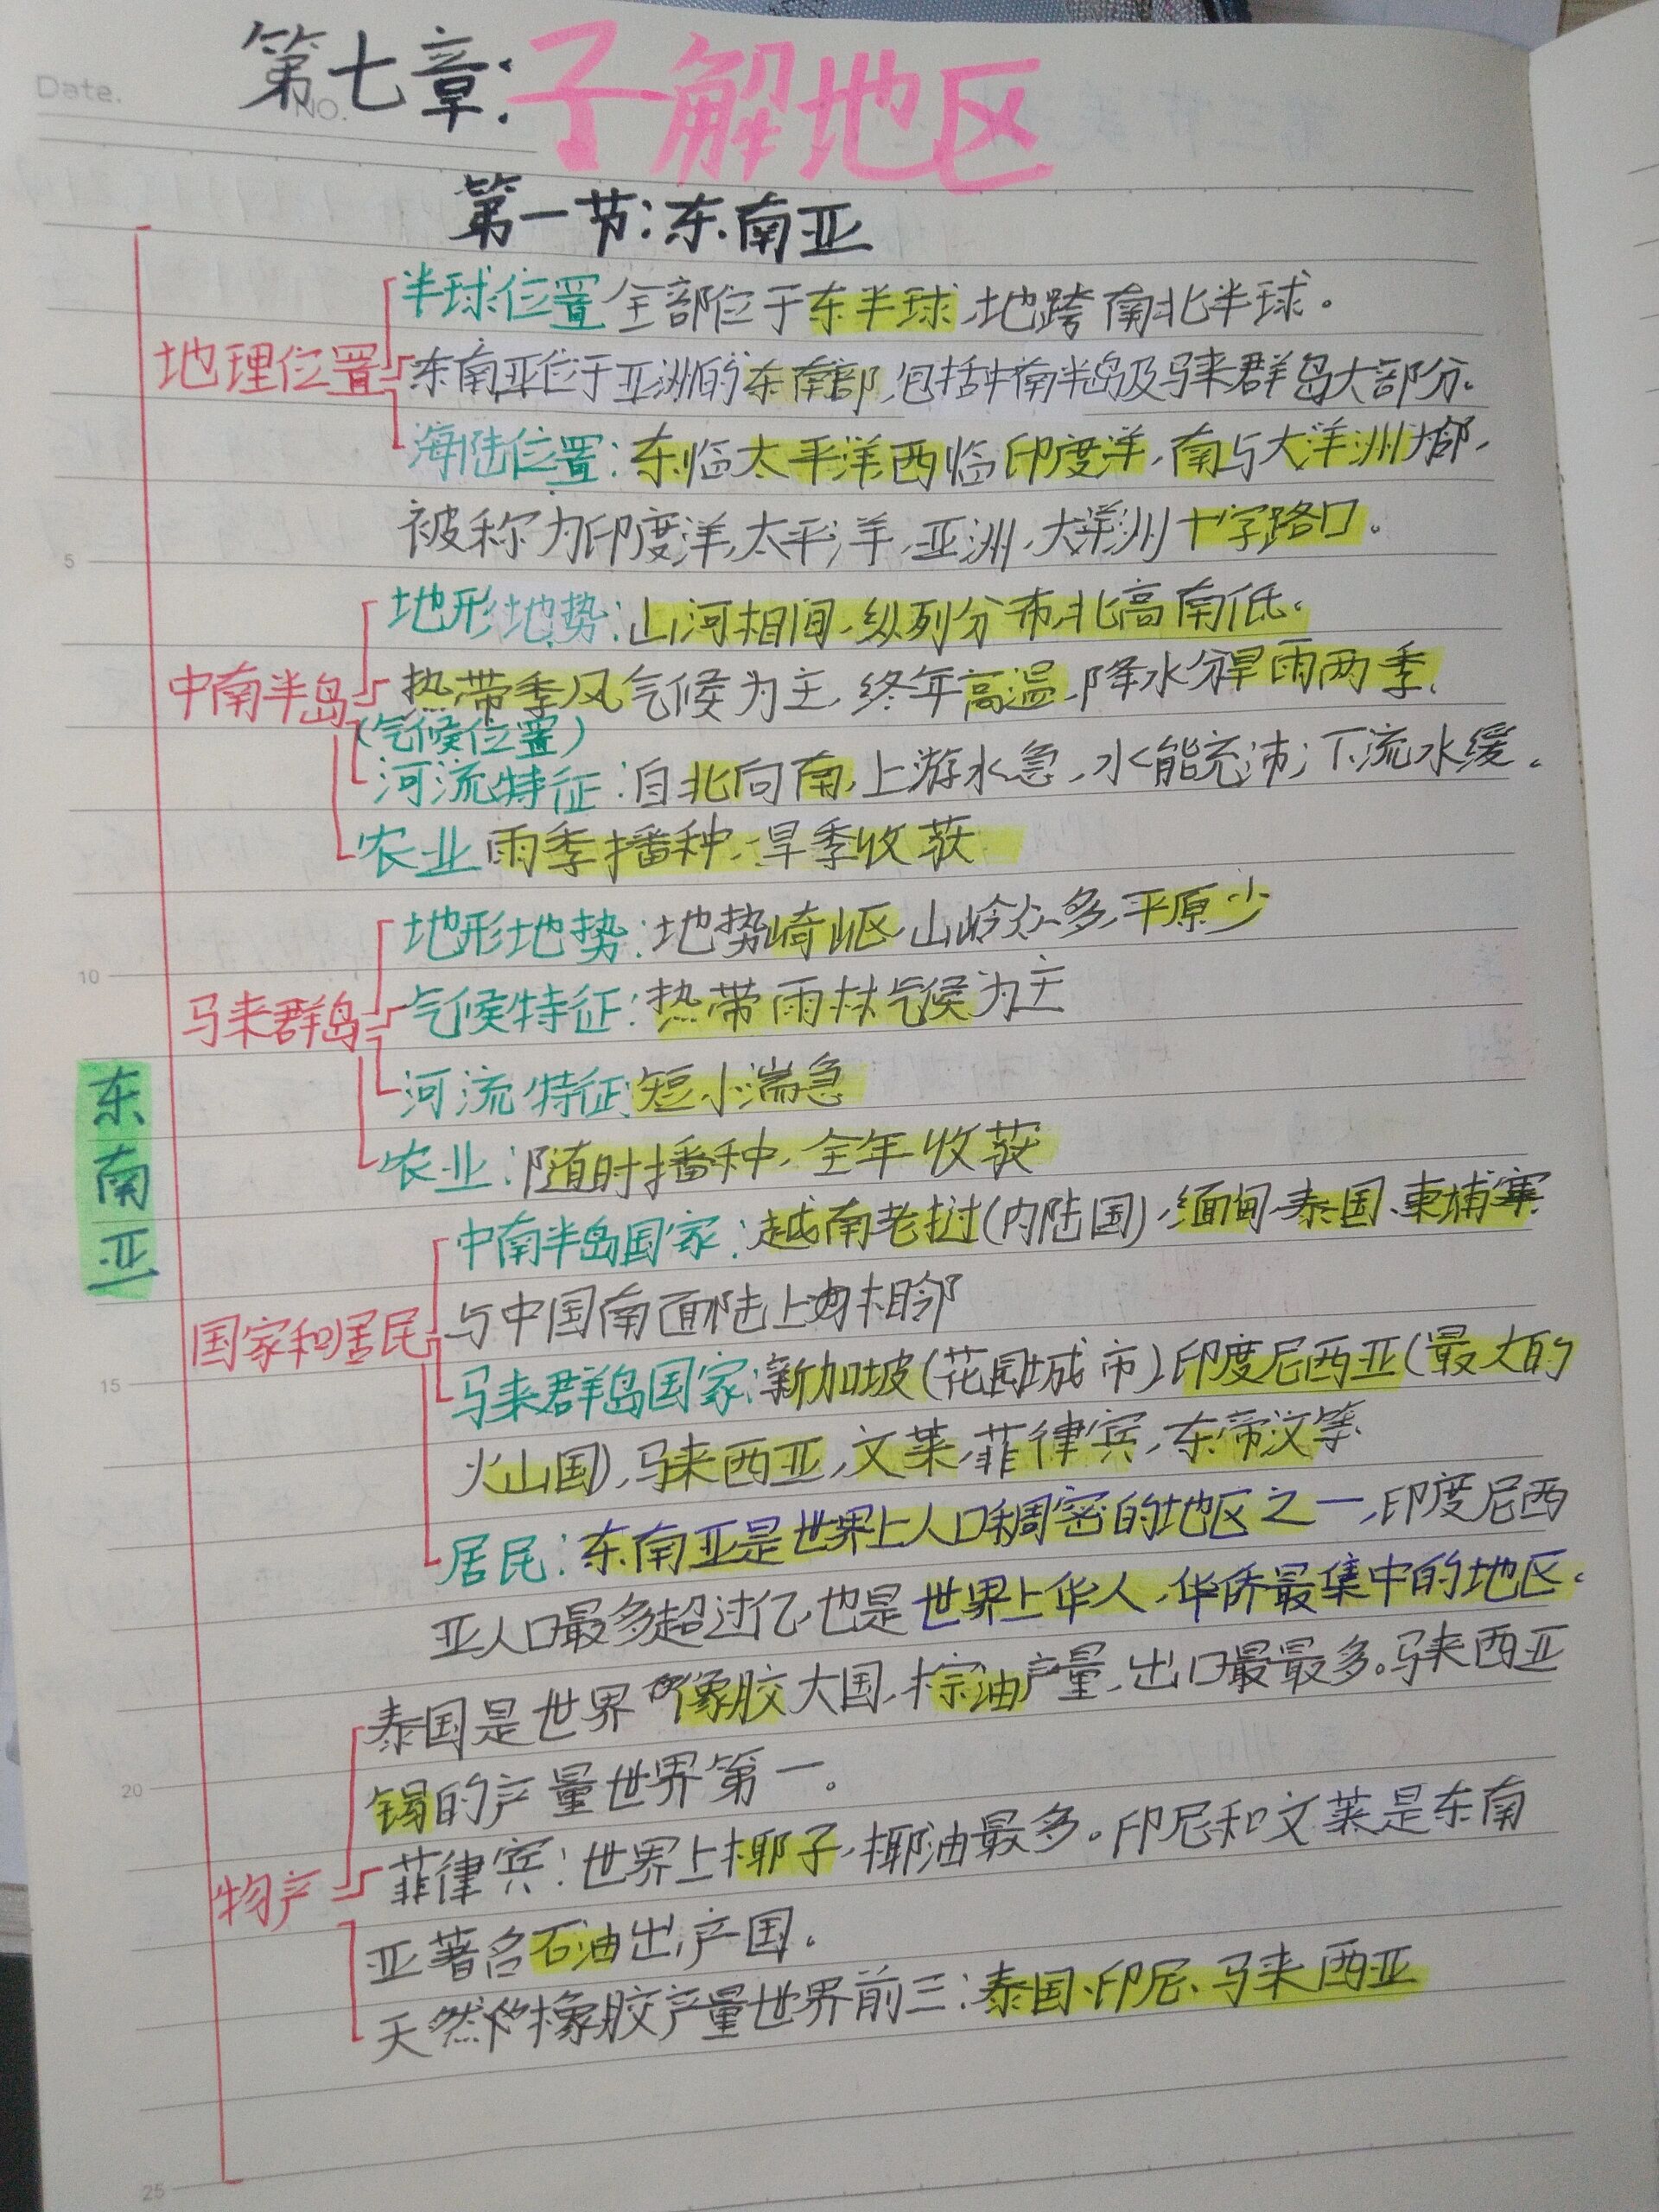 Date.
NO.
第七章:了解地区
第一节:东南亚
半球位置 全部位于东半球,地跨南北半球。
地理位置
东南亚位于亚洲的东南部,包括中南半岛及马来群岛大部分。
海陆位置:东临太平洋西临印度洋,南与大洋洲为邻,
被称为印度洋,太平洋,亚洲,大洋洲十字路口。
5
地形地势:山河相间,纵列分布,北高南低。
中南半岛
热带季风气候为主,终年高温,降水分旱雨两季,
(气候位置)
河流特征:自北向南,上游水急,水能充沛;下流水缓。
农业 雨季播种,旱季收获
地形地势:地势崎岖,山岭众多,平原少
10
马来群岛
气候特征:热带雨林气候为主
河流特征:短小湍急
农业:随时播种,全年收获
东南亚
中南半岛国家:越南老挝(内陆国),缅甸、泰国、柬埔寨
国家和居民
与中国南面陆上相邻
15
马来群岛国家:新加坡(花园城市),印度尼西亚(最大的
火山国),马来西亚,文莱,菲律宾,东帝汶等
居民:东南亚是世界上人口稠密的地区之一,印度尼西
亚人口最多超过亿,也是世界上华人,华侨最集中的地区。
泰国是世界的橡胶大国,棕油产量,出口最最多。马来西亚
20
锡的产量世界第一。
物产
菲律宾:世界上椰子,椰油最多。印尼和文莱是东南
亚著名石油出产国。
天然的橡胶产量世界前三:泰国、印尼、马来西亚
25